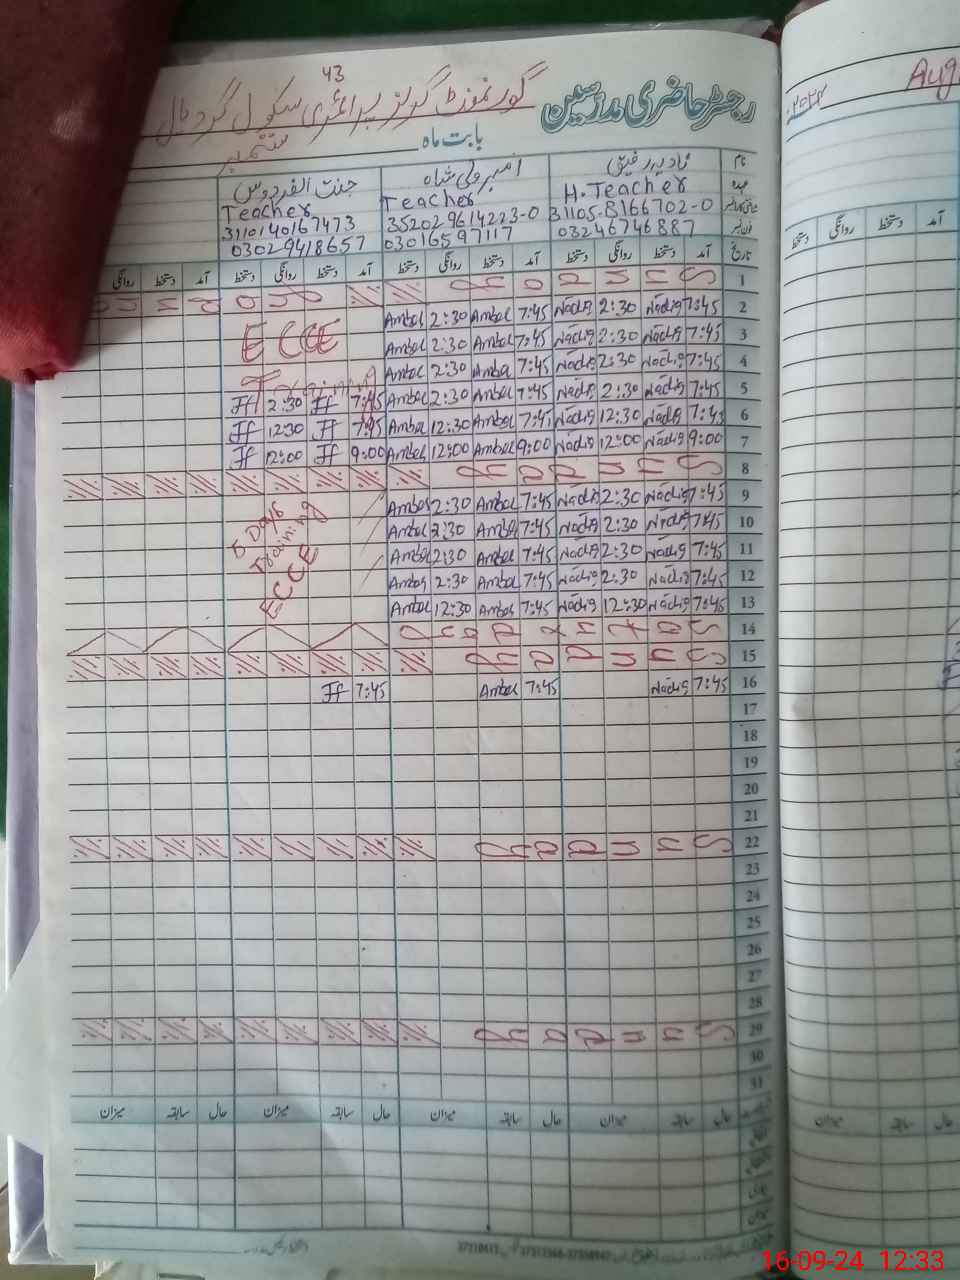 43
رجسٹر حاضری مدرسین گورنمنٹ گرلز پرائمری سکول
بابت ماہ ستمبر
نام نادیہ رفیق امبر ولی شاہ جنت الفردوس
عہدہ H.Teacher Teacher Teacher
31105-8166702-0 352029614223-0 3110140167473
03246746887 03016597117 03029418657
تاریخ آمد دستخط روانگی دستخط آمد دستخط روانگی دستخط آمد دستخط روانگی دستخط آمد دستخط روانگی
1 Sunday
2 7:45 Nadia 2:30 Nadia 7:45 Amber 2:30 Amber
3 7:45 Nadia 2:30 Nadia 7:45 Amber 2:30 Amber ECCE
4 7:45 Nadia 2:30 Nadia 7:45 Amber 2:30 Amber Training
5 7:45 Nadia 2:30 Nadia 7:45 Amber 2:30 Amber 7:45 Jf 2:30 Jf
6 7:45 Nadia 12:30 Nadia 7:45 Amber 12:30 Amber 7:45 Jf 12:30 Jf
7 9:00 Nadia 12:00 Nadia 9:00 Amber 12:00 Amber 9:00 Jf 12:00 Jf
8 Sunday
9 7:45 Nadia 2:30 Nadia 7:45 Amber 2:30 Amber
10 7:45 Nadia 2:30 Nadia 7:45 Amber 2:30 Amber Days
11 7:45 Nadia 2:30 Nadia 7:45 Amber 2:30 Amber Training
12 7:45 Nadia 2:30 Nadia 7:45 Amber 2:30 Amber ECCE
13 7:45 Nadia 12:30 Nadia 7:45 Amber 12:30 Amber
14 Saturday
15 Sunday
16 7:45 Nadia 7:45 Amber 7:45 Jf
17
18
19
20
21
22 Sunday
23
24
25
26
27
28
29 Sunday
30
31
حال سابقہ میزان حال سابقہ میزان حال سابقہ میزان
Aug
آمد دستخط روانگی دستخط
حال سابقہ میزان
16-09-24 12:33